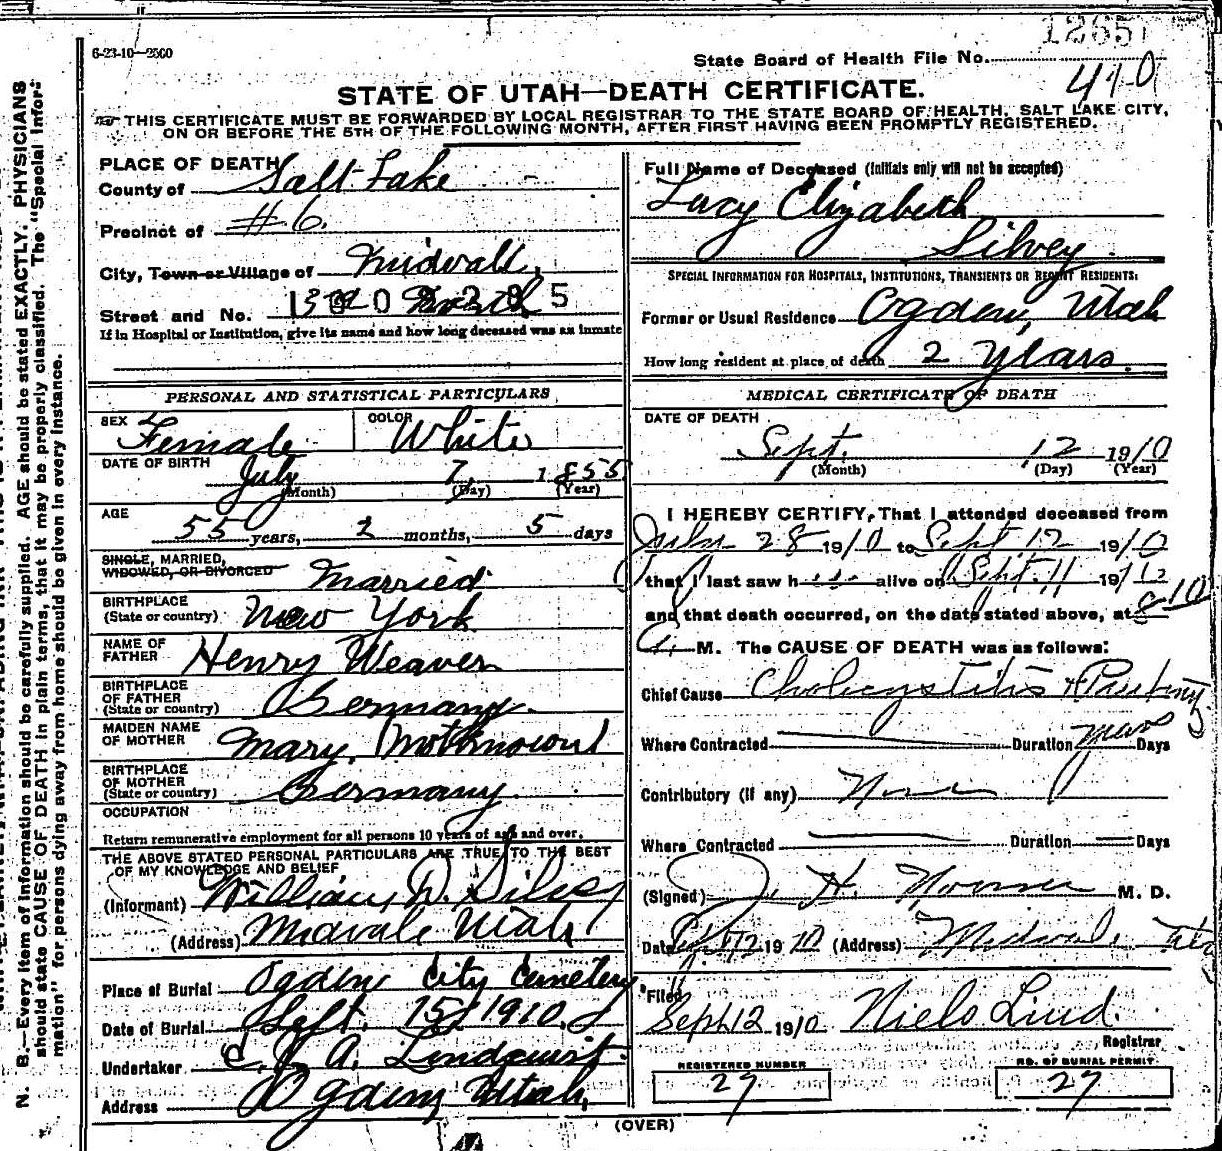 6-23-10—2500
State Board of Health File No.
410
STATE OF UTAH—DEATH CERTIFICATE.
THIS CERTIFICATE MUST BE FORWARDED BY LOCAL REGISTRAR TO THE STATE BOARD OF HEALTH, SALT LAKE CITY,
ON OR BEFORE THE 5TH OF THE FOLLOWING MONTH, AFTER FIRST HAVING BEEN PROMPTLY REGISTERED.
N. B.—Every item of information should be carefully supplied. AGE should be stated EXACTLY. PHYSICIANS
should state CAUSE OF DEATH in plain terms, that it may be properly classified. The "Special Infor-
mation" for persons dying away from home should be given in every instance.
PLACE OF DEATH
County of Salt Lake
Precinct of #6.
City, Town or Village of Midvale,
Street and No.
If in Hospital or Institution, give its name and how long deceased was an inmate
PERSONAL AND STATISTICAL PARTICULARS
SEX Female COLOR White
DATE OF BIRTH July 7, 1855
(Month) (Day) (Year)
AGE
55 years, 2 months, 5 days
SINGLE, MARRIED,
WIDOWED, OR DIVORCED Married
BIRTHPLACE
(State or country) New York
NAME OF
FATHER Henry Weaver
BIRTHPLACE
OF FATHER
(State or country) Germany.
MAIDEN NAME
OF MOTHER Mary
BIRTHPLACE
OF MOTHER
(State or country) Germany
OCCUPATION
Return remunerative employment for all persons 10 years of age and over.
THE ABOVE STATED PERSONAL PARTICULARS ARE TRUE TO THE BEST
OF MY KNOWLEDGE AND BELIEF
(Informant) William D. Silvey
(Address) Midvale Utah
Place of Burial Ogden City Cemetery
Date of Burial Sept. 15, 1910
Undertaker A. Lindquist
Address Ogden, Utah,
Full Name of Deceased (Initials only will not be accepted)
Lucy Elizabeth
Silvey
SPECIAL INFORMATION FOR HOSPITALS, INSTITUTIONS, TRANSIENTS OR RECENT RESIDENTS:
Former or Usual Residence Ogden, Utah
How long resident at place of death 2 years.
MEDICAL CERTIFICATE OF DEATH
DATE OF DEATH
Sept. 12 1910
(Month) (Day) (Year)
I HEREBY CERTIFY, That I attended deceased from
28 1910 to Sept 12 1910
that I last saw h alive on Sept. 11 19
and that death occurred, on the date stated above, at 8-10
M. The CAUSE OF DEATH was as follows:
Chief Cause
Where Contracted Duration years Days
Contributory (if any) None
Where Contracted Duration Days
(Signed) J. H. M. D.
Date Sept 12 1910 (Address) Midvale, Utah
Filed
Sept 12 1910 Niels Lind.
Registrar
REGISTERED NUMBER
27
NO. OF BURIAL PERMIT
27
(OVER)